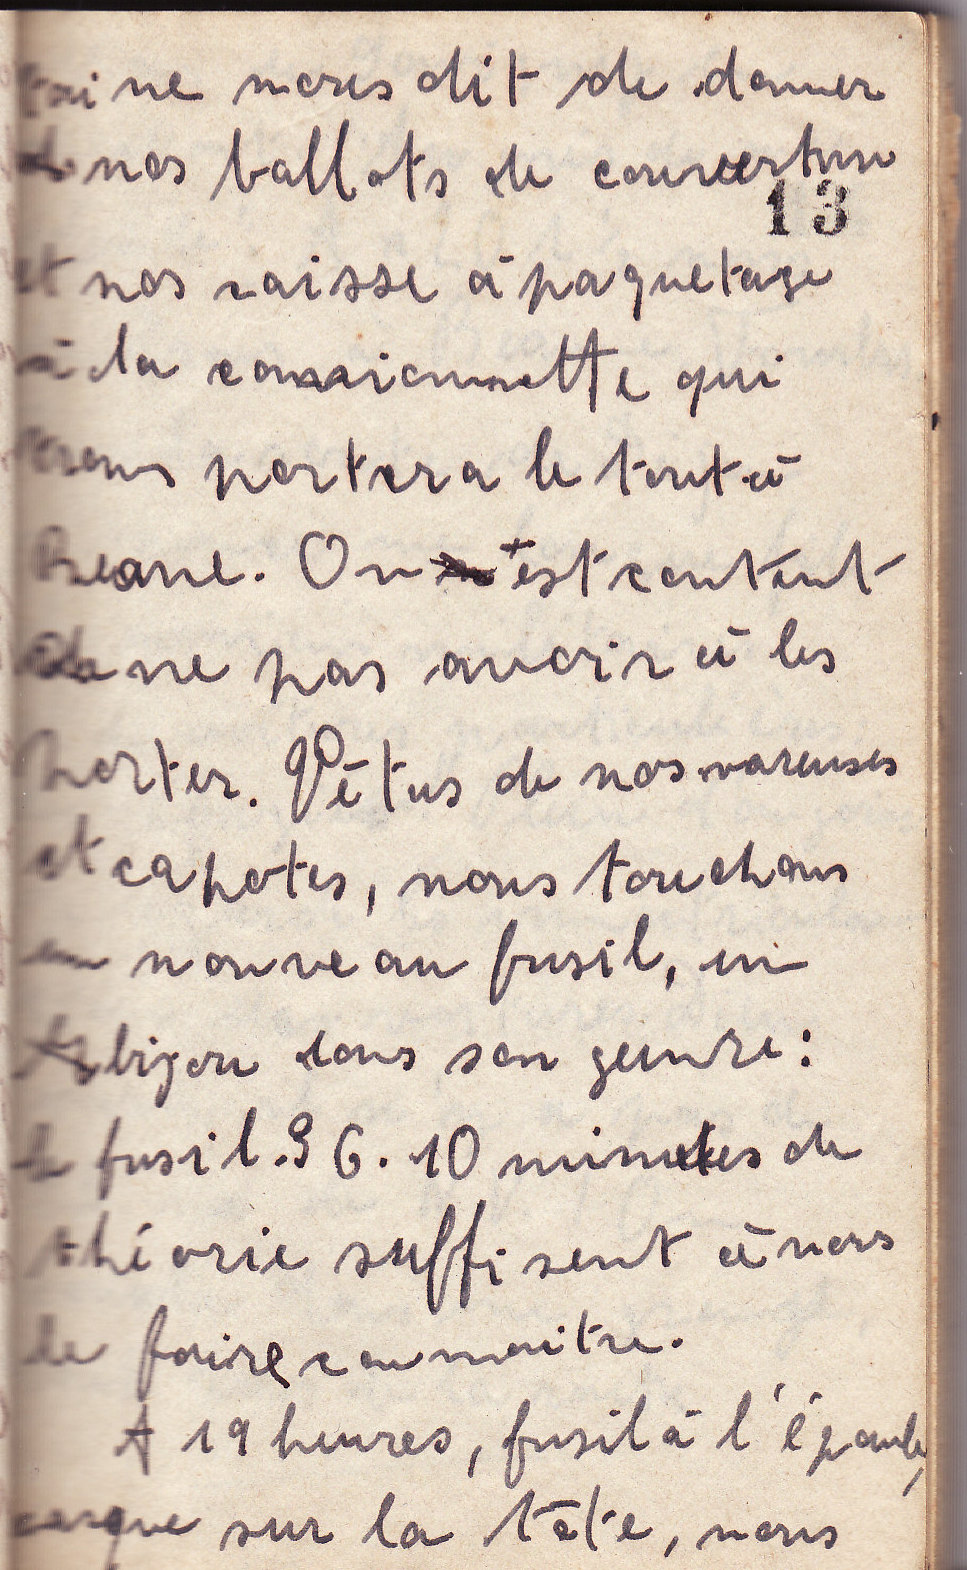 taine nous dit de donner
de nos ballots de couverture
13
et nos caisse à paquetage
à la camionnette qui
nous portera le tout à
On est content
de ne pas avoir à les
porter. Vêtus de nos vareuses
et capotes, nous touchons
un nouveau fusil, un
bijou dans son genre:
le fusil 36. 10 minutes de
théorie suffisent à nous
le faire connaitre.
A 19 heures, fusil à l'épaule,
casque sur la tête, nous